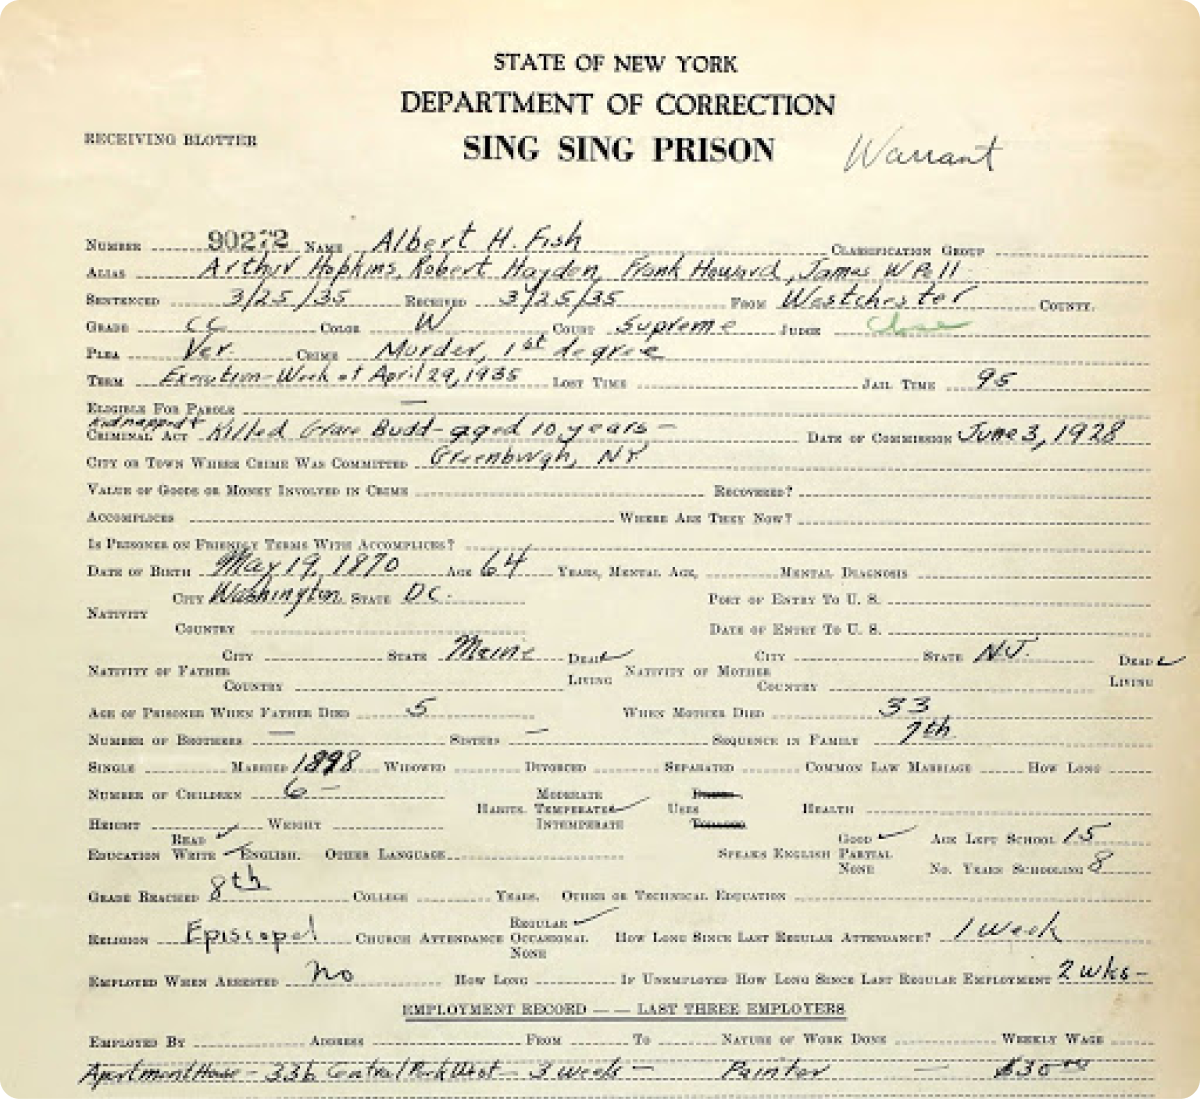 STATE OF NEW YORK
DEPARTMENT OF CORRECTION
RECEIVING BLOTTER SING SING PRISON Warrant
NUMBER 90272 NAME Albert H. Fish CLASSIFICATION GROUP
ALIAS Arthur Hopkins, Robert Hayden, Frank Howard, James W Pell
SENTENCED 3/25/35 RECEIVED 3/25/35 FROM Westchester COUNTY.
GRADE CC COLOR W COURT Supreme JUDGE Close
PLEA Ver. CRIME Murder, 1st degree
TERM Execution-Week of April 29, 1935 LOST TIME JAIL TIME 95
ELIGIBLE FOR PAROLE —
Kidnapped +
CRIMINAL ACT Killed Grace Budd - aged 10 years - DATE OF COMMISSION June 3, 1928
CITY OR TOWN WHERE CRIME WAS COMMITTED Greenburgh, NY
VALUE OF GOODS OR MONEY INVOLVED IN CRIME RECOVERED?
ACCOMPLICES WHERE ARE THEY NOW?
IS PRISONER ON FRIENDLY TERMS WITH ACCOMPLICES?
DATE OF BIRTH May 19, 1870 AGE 64 YEARS, MENTAL AGE, MENTAL DIAGNOSIS
CITY Washington STATE D.C. PORT OF ENTRY TO U. S.
NATIVITY
COUNTRY DATE OF ENTRY TO U. S.
CITY STATE Maine DEAD ✓ CITY STATE N.J. DEAD ✓
NATIVITY OF FATHER LIVING NATIVITY OF MOTHER LIVING
COUNTRY COUNTRY
AGE OF PRISONER WHEN FATHER DIED 5 WHEN MOTHER DIED 33
NUMBER OF BROTHERS — SISTERS — SEQUENCE IN FAMILY 7th
SINGLE MARRIED 1898 WIDOWED DIVORCED SEPARATED COMMON LAW MARRIAGE HOW LONG
NUMBER OF CHILDREN 6 - MODERATE
HABITS. TEMPERATE ✓ USES HEALTH
HEIGHT WEIGHT INTEMPERATE TOBACCO
READ ✓ GOOD ✓ AGE LEFT SCHOOL 15
EDUCATION WRITE ✓ ENGLISH. OTHER LANGUAGE SPEAKS ENGLISH PARTIAL
NONE NO. YEARS SCHOOLING 8
GRADE REACHED 8th COLLEGE YEARS. OTHER OR TECHNICAL EDUCATION
REGULAR ✓
RELIGION Episcopal CHURCH ATTENDANCE OCCASIONAL HOW LONG SINCE LAST REGULAR ATTENDANCE? 1 week
NONE
EMPLOYED WHEN ARRESTED no HOW LONG IF UNEMPLOYED HOW LONG SINCE LAST REGULAR EMPLOYMENT 2 wks -
EMPLOYMENT RECORD — — LAST THREE EMPLOYERS
EMPLOYED BY ADDRESS FROM TO NATURE OF WORK DONE WEEKLY WAGE
Apartment House - 336 Central Park West - 3 weeks - Painter - $30.00